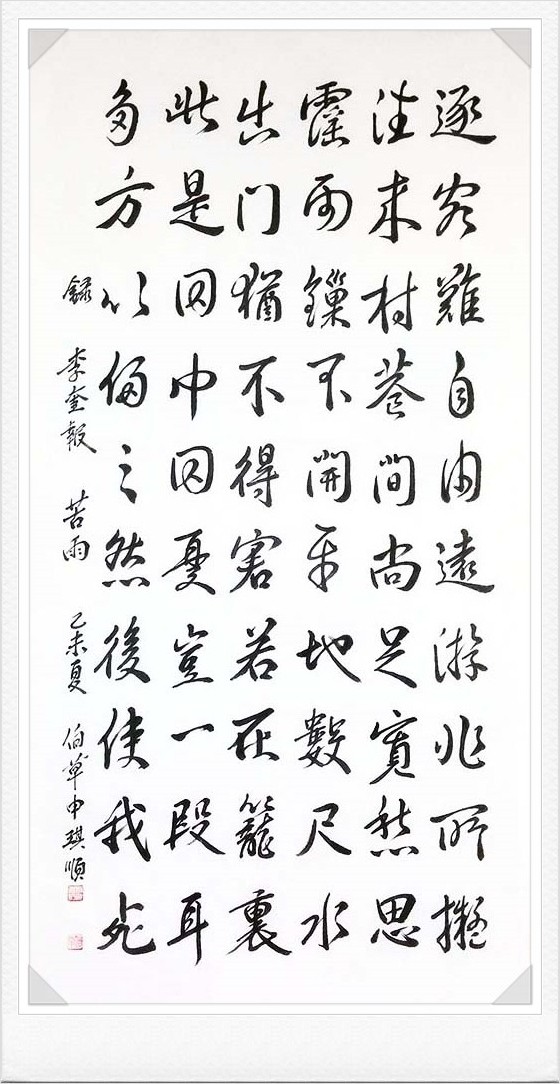 逐客難自由遠游非所擬
往來村巷間尚足寬愁思
霪雨鏁不開平地數尺水
出門猶不得窘若在籠裏
此是囚中囚憂豈一段耳
多方以侮之然後使我死
錄 李奎報 苦雨 乙未夏 伯草申琪順